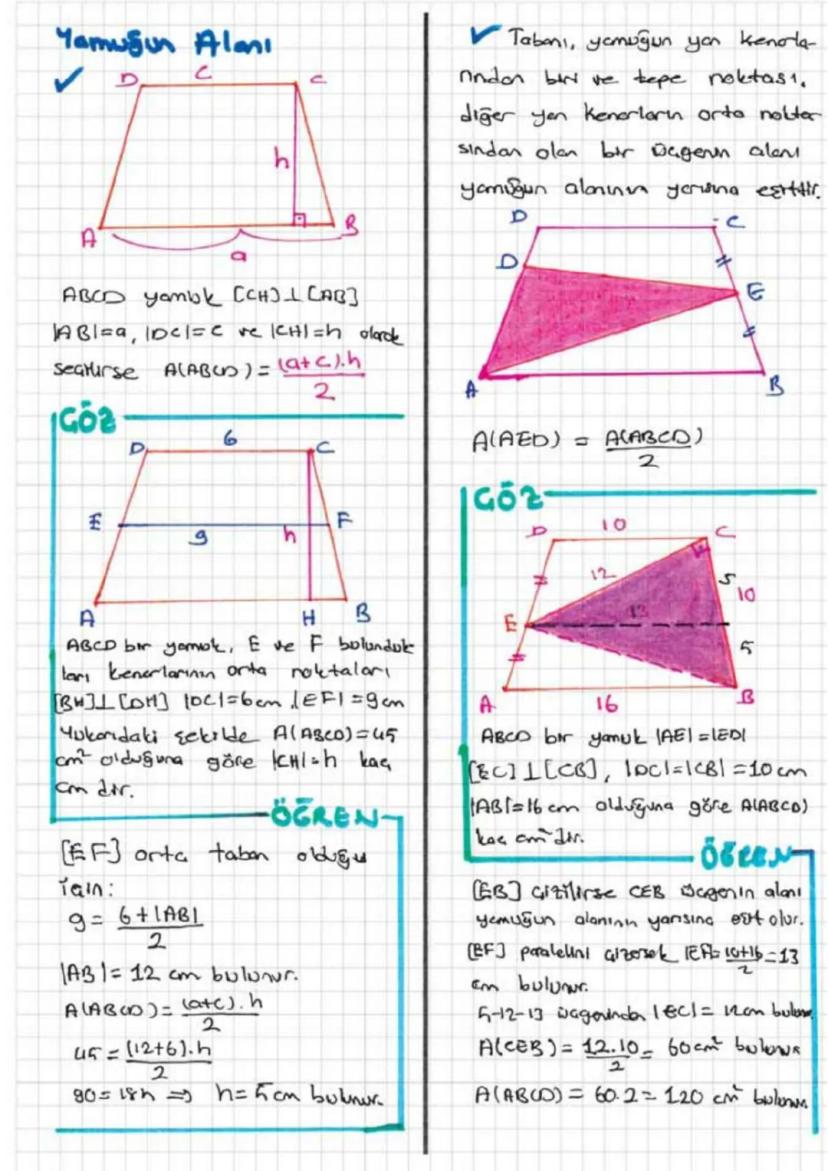 Yamuğun Alanı
✓
D C C
h
A B
a
ABCD yamuk [CH]⊥[AB]
|AB|=a, |DC|=c ve |CH|=h olarak
seçilirse A(ABCD) = (a+c).h
2
GÖZ
D 6 C
E 9 h F
A H B
ABCD bir yamuk, E ve F bulunduk
ları kenarlarının orta noktaları
[BH]⊥[DH] |DC|=6cm |EF|=9cm
Yukarıdaki şekilde A(ABCD)=45
cm² olduğuna göre |CH|=h kaç
cm dir.
ÖĞREN
[EF] orta taban olduğu
için:
9= 6+|AB|
2
|AB|= 12 cm bulunur.
A(ABCD)= (a+c).h
2
45 = (12+6).h
2
90= 18h ⇒ h=5cm bulunur.
✓ Tabanı, yamuğun yan kenarla-
rından biri ve tepe noktası,
diğer yan kenarların orta nokta
sından olan bir üçgenin alanı
yamuğun alanının yarısına eşittir.
D C
D
E
A B
A(AED) = A(ABCD)
2
GÖZ
D 10 C
12 5
10
E 13
5
A 16 B
ABCD bir yamuk |AE|=|ED|
[EC]⊥[CB], |DC|=|CB|=10cm
|AB|=16 cm olduğuna göre A(ABCD)
kaç cm² dir.
ÖĞREN
[EB] çizilirse CEB üçgenin alanı
yamuğun alanının yarısına eşit olur.
[EF] paralelini çizersek |EF|= 10+16 =13
2
cm bulunur.
5-12-13 üçgeninden |EC|= 12cm bulunur
A(CEB)= 12.10 = 60cm² bulunur
2
A(ABCD)= 60.2= 120 cm² bulunur